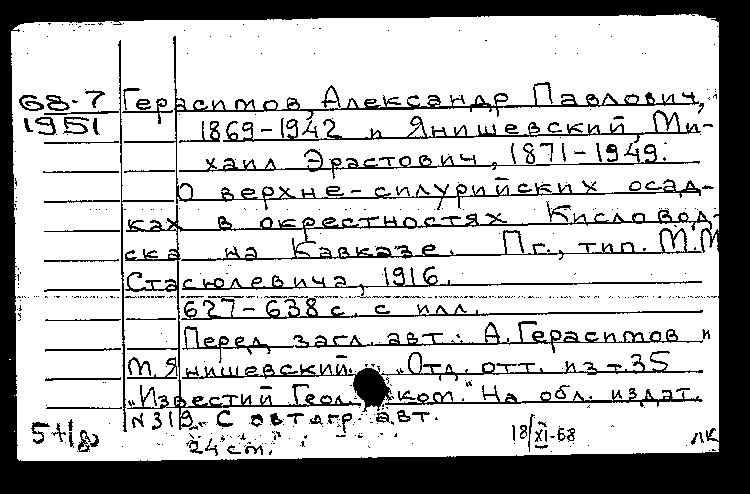 68-7 Герасимов, Александр Павлович,
1951 1869-1942 и Янишевский, Ми-
хаил Эрастович, 1871-1949.
О верхне-силурийских осад-
ках в окрестностях Кисловод-
ска на Кавказе. Пг., тип. М.М
Стасюлевича, 1916.
627-638 с. с илл.
Перед загл. авт.: А. Герасимов и
М. Янишевский. "Отд. отт. из т. 35
"Известий Геол. ком." На обл. издат.
N 319. С автогр. авт.
24 см.
18/XI-68
ЛК